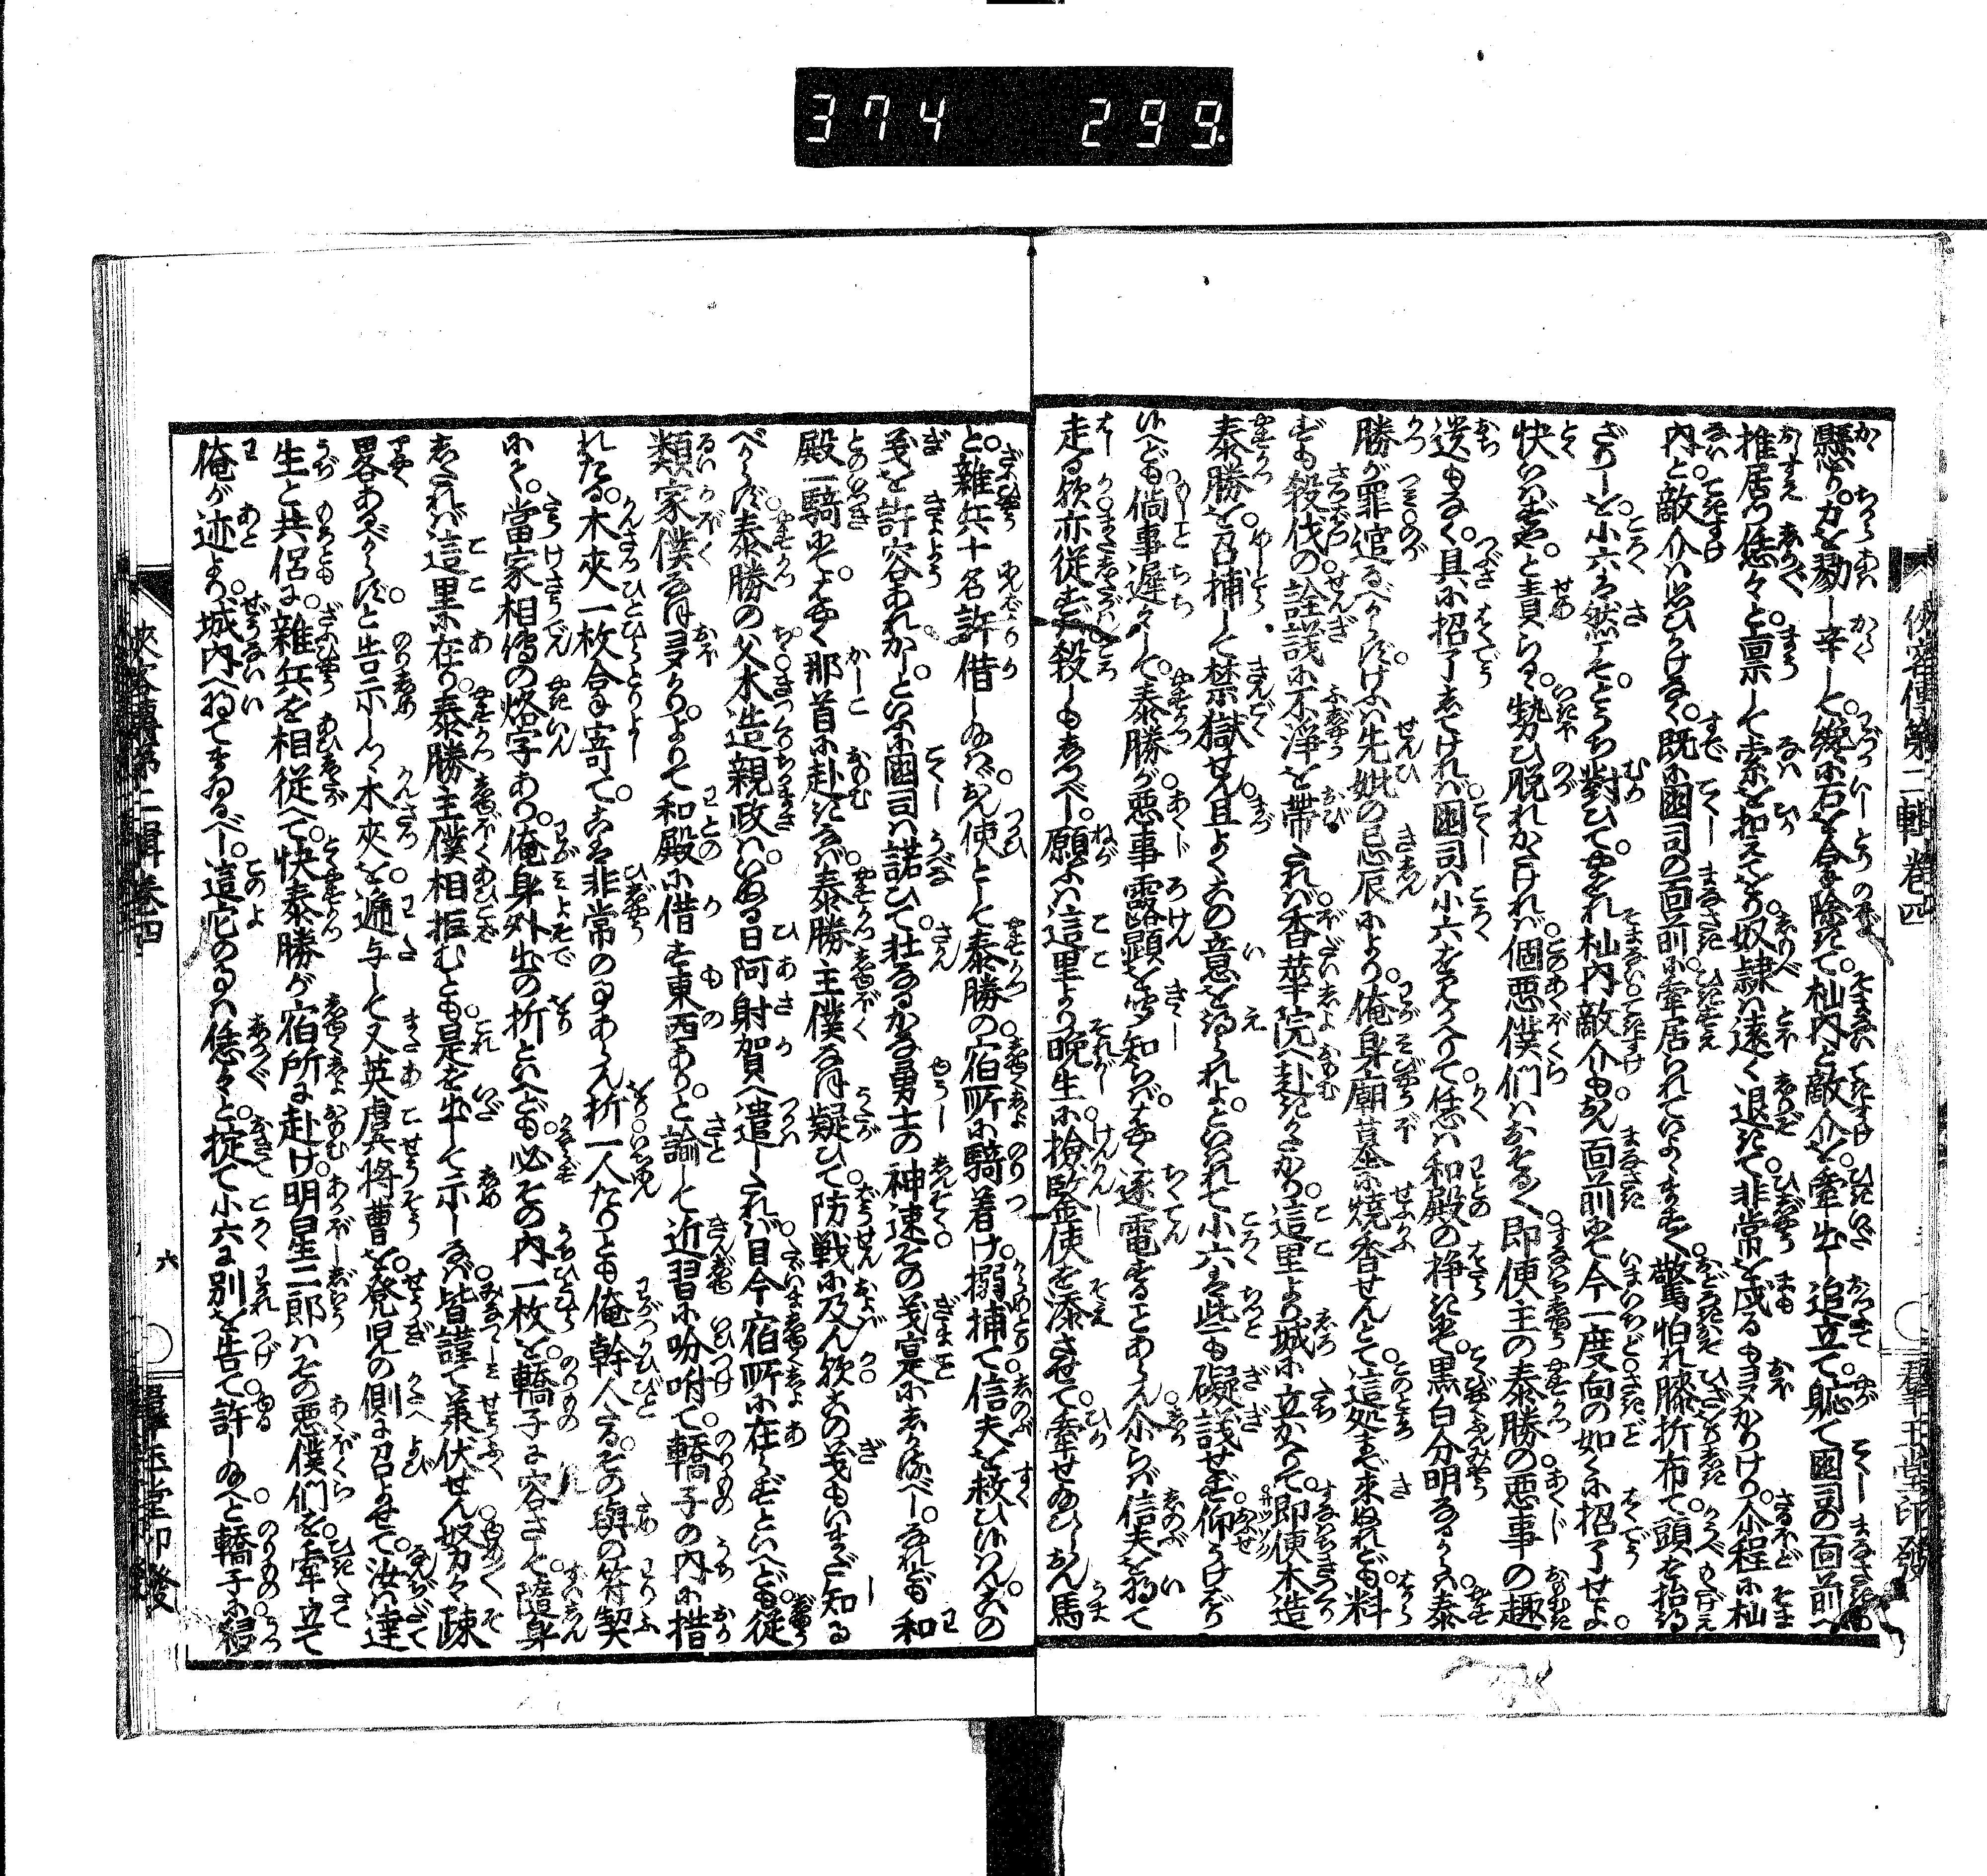 374 299
俠客傳第二輯卷四
群玉堂印發
縣り。力を勠し辛くして、纔に石を合除きて、杣内と敵介を牽出し追立て、軈て國司の面前へ
推居つ、恁々と禀して、索を扣えてをり。奴隷は遠く退きて、非常を戍るも多かりけり。尒程に杣
内と敵介は思ひかけなく、既に國司の面前に牽居られていよゝます〳〵、驚怕れ膝折布て、頭を抬得
ざりしを、小六は然こそとうち對ひて、やをれ杣内敵介も、面前にて今一度、向の如くに招了せよ。
快いはずや、と責らるゝ、勢ひ脱れかたければ、個悪僕們はおそる〳〵、即便主の泰勝の悪事の趣
送もなく、具に招了してければ、國司は小六を見かへりて、恁は和殿の挣きにて、黒白分明なるからは、泰
勝が罪逭るべからず。けふは先妣の忌辰により、俺身廟墓に燒香せんとて、這処まで来ぬれども、料
ずも殺伐の、詮議に不浄を帯たれば、香華院へ赴きがたかり。這里より城に立かへりて、即便木造
泰勝を、召捕して禁獄せん。且よくこの意を得られよ、といはれて小六は些も礙議せず、仰うけ給はり
候へども、倘事遲々して、泰勝が悪事露顯を听知らば、はやく逐電することあらん。尒らば信夫を将て
走る欤。亦従ずは殺しもしつべし。願ふは這里より晩生に、撿監使を添させて、牽せ給ひしおん馬
と、雜兵十名許借し給はゞ、おん使として泰勝の、宿所に騎着け搦捕て、信夫を救ひ候はん。この
義を許容あれかし、といふに國司は諾ひて、壮なるかな勇士の神速、その義寔にしかるべし。なれども和
殿一騎にて、はやく那首に赴きなば、泰勝主僕なほ疑ひて、防戦に及ん欤、この義もいまだ知る
べからず。泰勝の父木造親政は、いぬる日阿射賀へ遣したれば、目今宿所に在らずといへども、従
類家僕なほ多かり。よりて和殿に借す東西あり、と諭して近習に吩咐て、轎子の内に措
れたる、木夾一枚合寄て、こは非常の事あらん折、一人なりとも俺幹人たる、その與の符契
にて、當家相傳の烙字あり。俺身外出の折といへども、必その内一枚を、轎子に容さして隨身
しぬれば這里に在り。泰勝主僕相拒むとも、是を出して示しなば、皆謹て兼伏せん。努々疎
畧あるべからず、と告示しつゝ木夾を、逓与して又英虞将曹を、凳児の側に召よせて、汝は達
生と共侶に、雜兵を相従へて、快泰勝が宿所に赴け。明星二郎はその悪僕們を、牽立て
俺が迹より、城内へ将てまゐるべし。這它のよは恁々、と掟て小六に別を告て、許し給へと轎子に、
俠客傳第二輯卷四
六
群玉堂印發